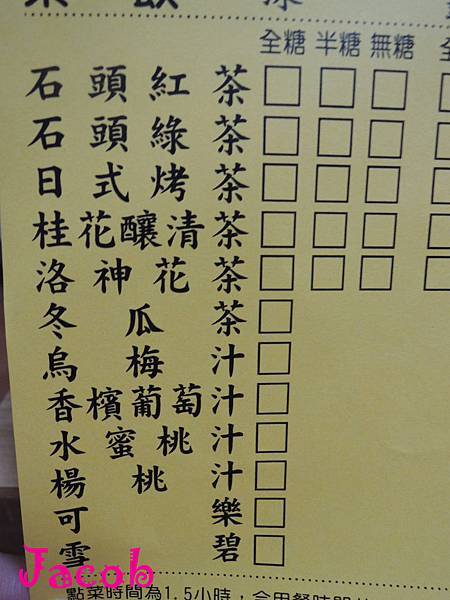 全糖 半糖 無糖
石頭紅茶
石頭綠茶
日式烤茶
桂花釀清茶
洛神花茶
冬瓜茶
烏梅汁
香檳葡萄汁
水蜜桃汁
楊桃汁
可樂
雪碧
點菜時間為1.5小時,
Jacob